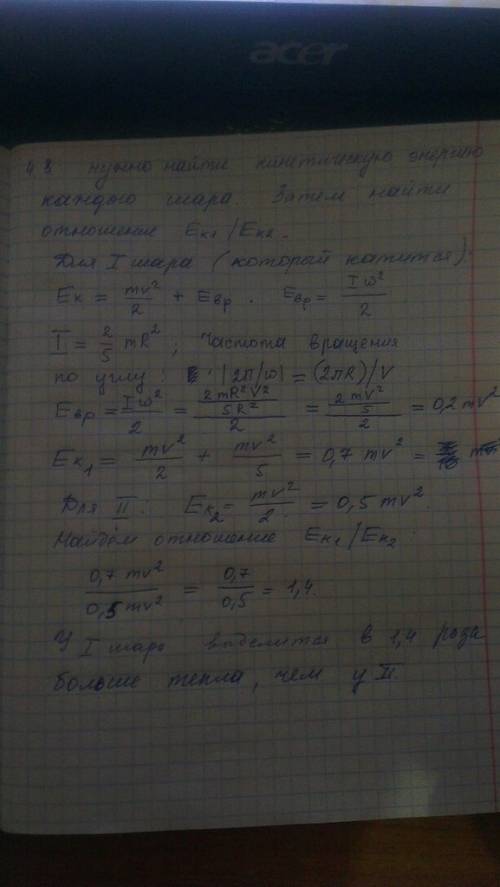 acer
48 нужно найти кинетическую энергию
каждого шара. Затем найти
отношение Eк1/Eк2.
Для I шара (который катится):
Eк = mv²/2 + Eвр. Eвр = Iω²/2
I = 2/5 mR²; Частота вращения
по углу: |2π/ω| = (2πR)/V
Eвр = Iω²/2 = (2mR²V²/5R²)/2 = (2mV²/5)/2 = 0,2 mv²
Eк1 = mv²/2 + mv²/5 = 0,7 mv² =
Для II: Eк2 = mv²/2 = 0,5 mv²
Найдем отношение Eк1/Eк2
0,7 mv²/0,5 mv² = 0,7/0,5 = 1,4.
У I шара выделится в 1,4 раза
больше тепла, чем у II